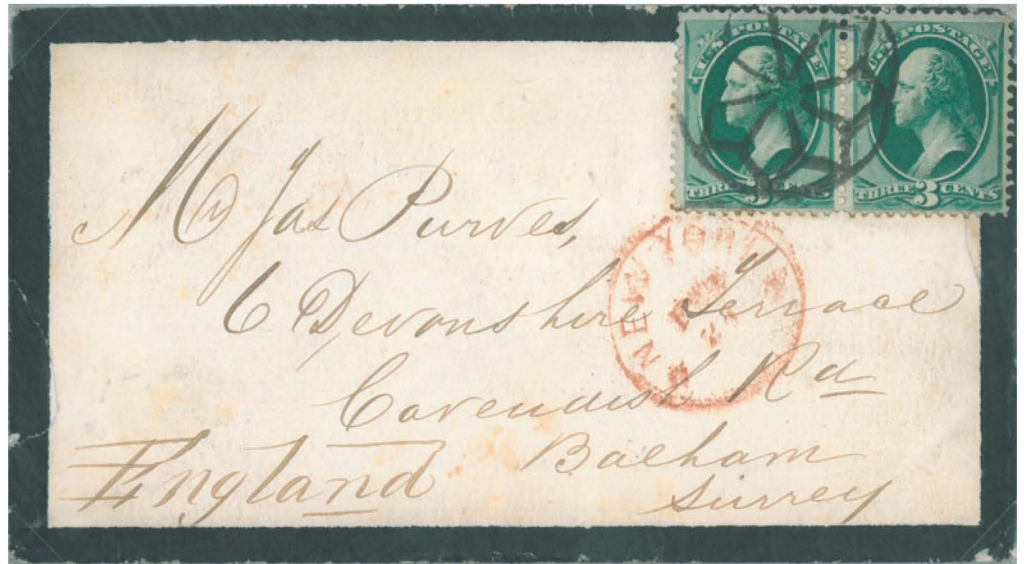 U.S. POSTAGE
U.S. POSTAGE
THREE 3 CENTS
THREE 3 CENTS
NEW YORK
Jas Purves,
6 Devonshire Terrace
Cavendish Rd
Balham
Surrey
England